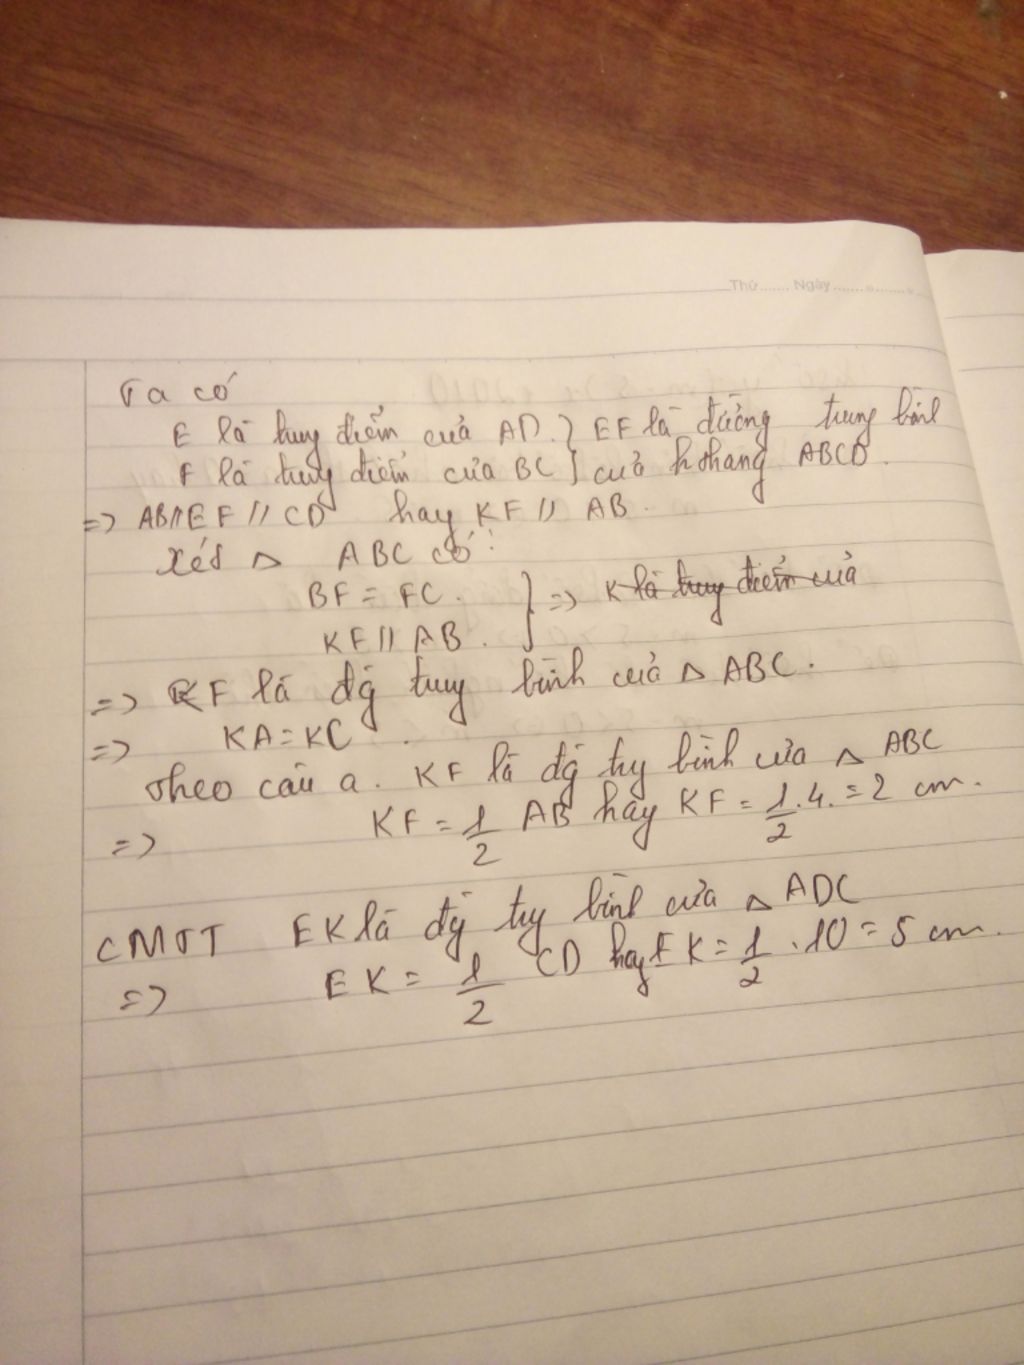 Thứ....... Ngày.................
Ta có
E là trung điểm của AD. } EF là đường trung bình
F là trung điểm của BC } của hthang ABCD.
=> AB//EF // CD hay KF // AB.
Xét △ ABC có:
BF = FC. } => K là trung điểm của
KF // AB.
=> KF là đg trung bình của △ ABC.
=> KA = KC.
Theo câu a. KF là đg tr bình của △ ABC
=> KF = 1/2 AB hay KF = 1/2 . 4. = 2 cm.
CMTT EK là đg tr bình của △ ADC
=> EK = 1/2 CD hay EK = 1/2 . 10 = 5 cm.